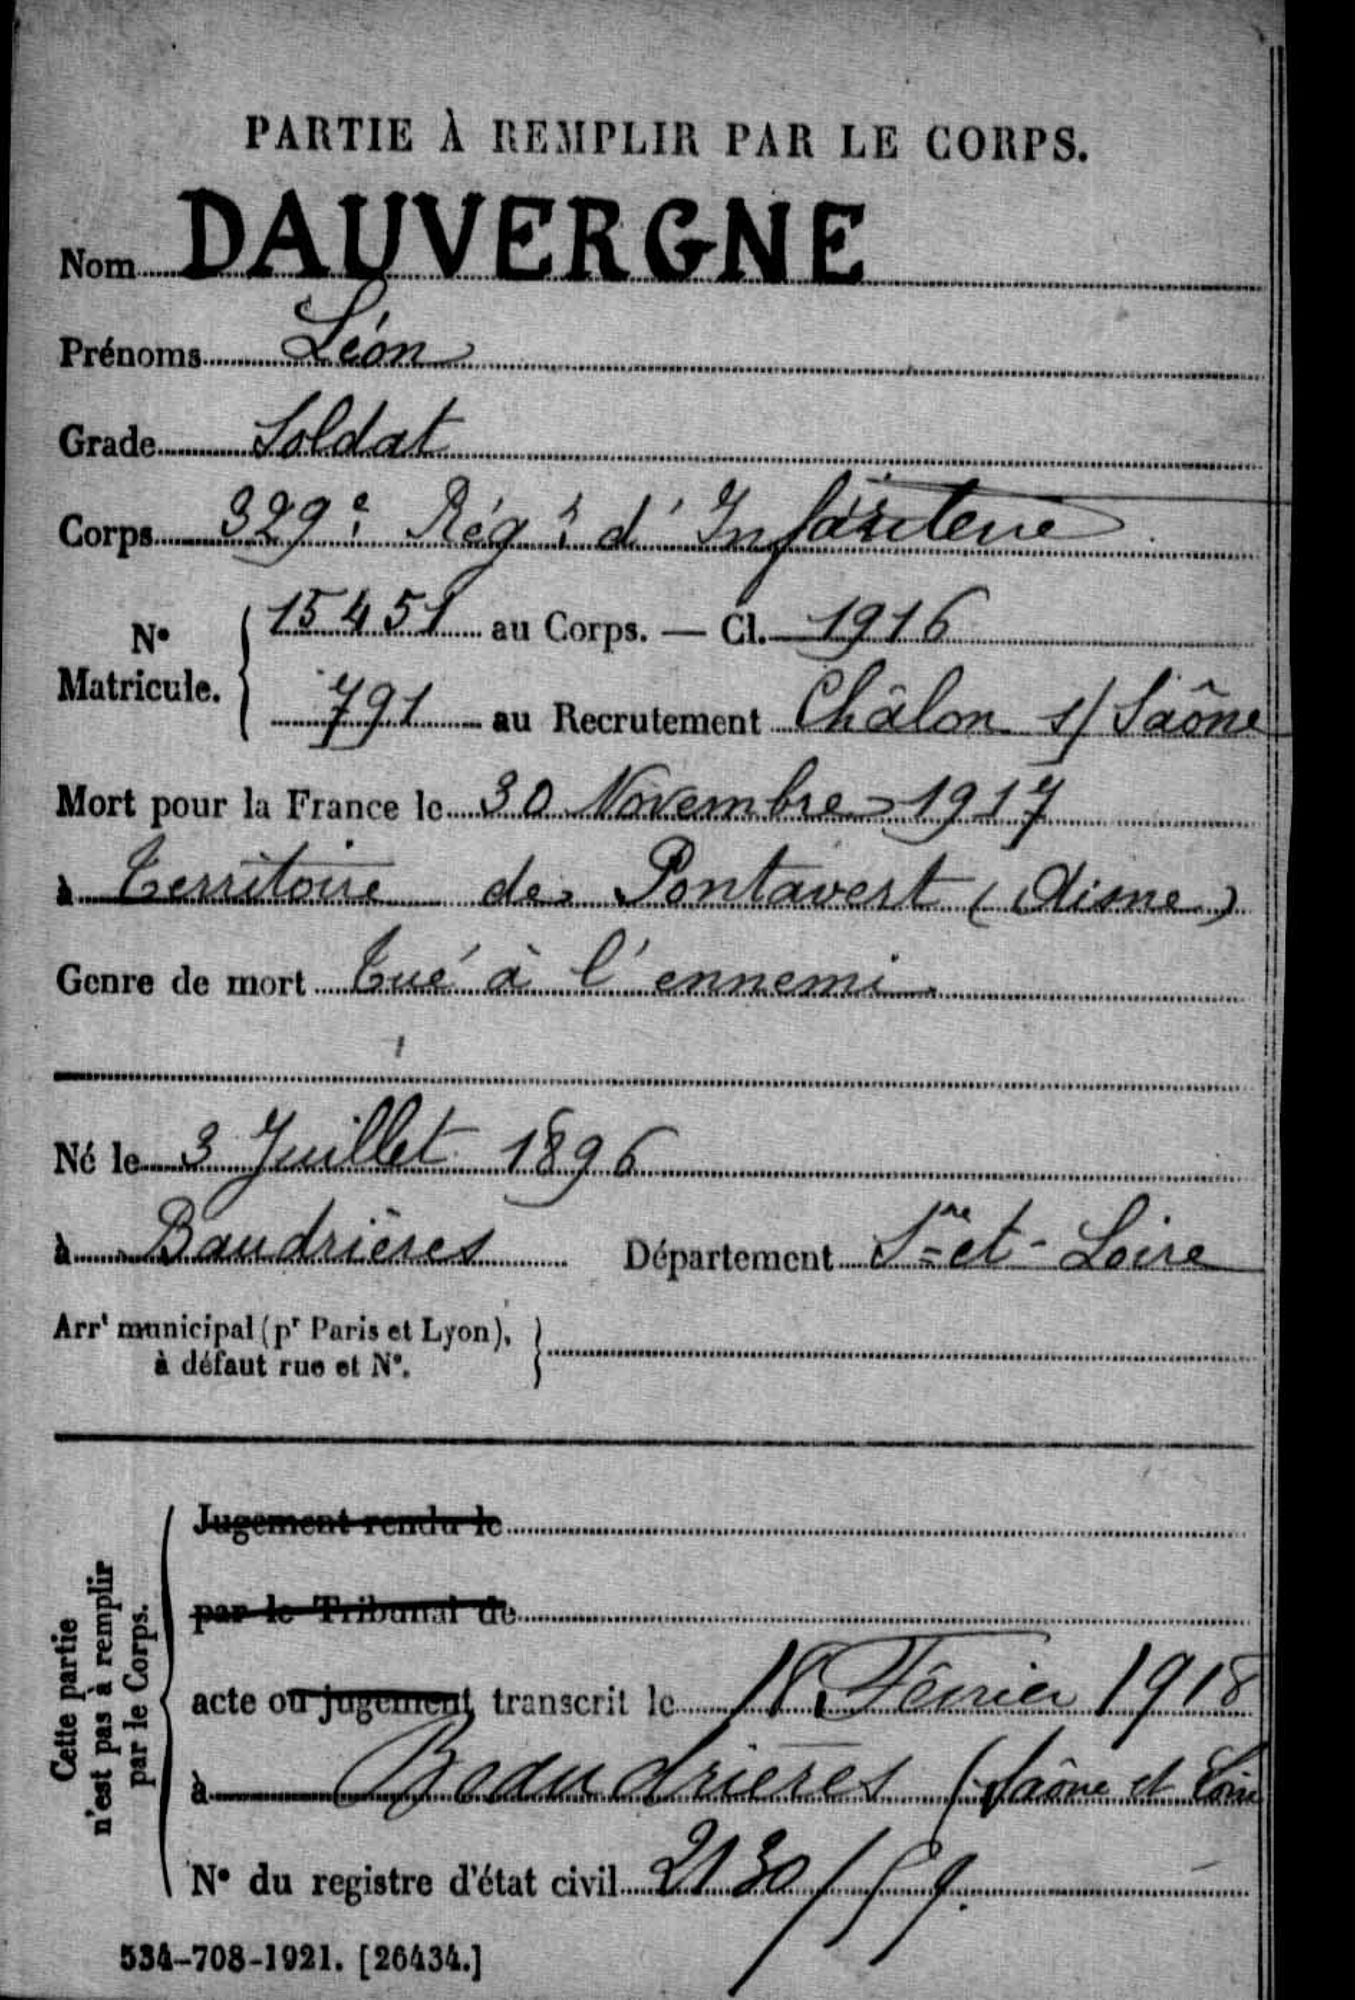 PARTIE À REMPLIR PAR LE CORPS.
Nom DAUVERGNE
Prénoms Léon
Grade Soldat
Corps 329e Régt d'Infanterie
N° Matricule. { 15451 au Corps. — Cl. 1916
791 au Recrutement Châlon s/ Saône
Mort pour la France le 30 Novembre 1917
à Territoire de Pontavert (Aisne)
Genre de mort Tué à l'ennemi
Né le 3 Juillet 1896
à Baudrières Département Sne et-Loire
Arrt municipal (pr Paris et Lyon), }
à défaut rue et N°.
Cette partie
n'est pas à remplir
par le Corps.
Jugement rendu le
par le Tribunal de
acte ou jugement transcrit le 18 Février 1918
à Baudrières (Saône et Loire
N° du registre d'état civil 2130/59.
534-708-1921. [26434.]